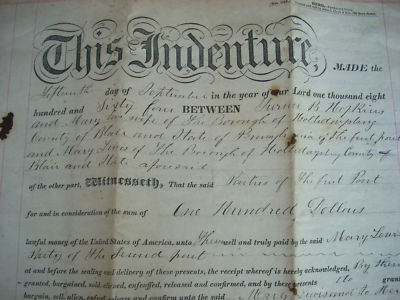 This Indenture, MADE the
fifteenth day of September in the year of our Lord one thousand eight
hundred and Sixty four BETWEEN B Hopkins
and Mary his wife of The Borough of Hollidaysburg
County of Blair and State of of the first part
and Mary of The Borough of Hollidaysburg County of
Blair and State aforesaid
of the other part, Witnesseth, That the said Parties of The first Part
for and in consideration of the sum of One Hundred Dollars
lawful money of the United States of America, unto Them well and truly paid by the said Mary
Party of The Second part
at and before the sealing and delivery of these presents, the receipt whereof is hereby acknowledged, By them
granted, bargained, sold, aliened, enfeoffed, released and confirmed, and by these presents do
bargain, sell, alien, enfeoff, release and confirm unto the said Mary